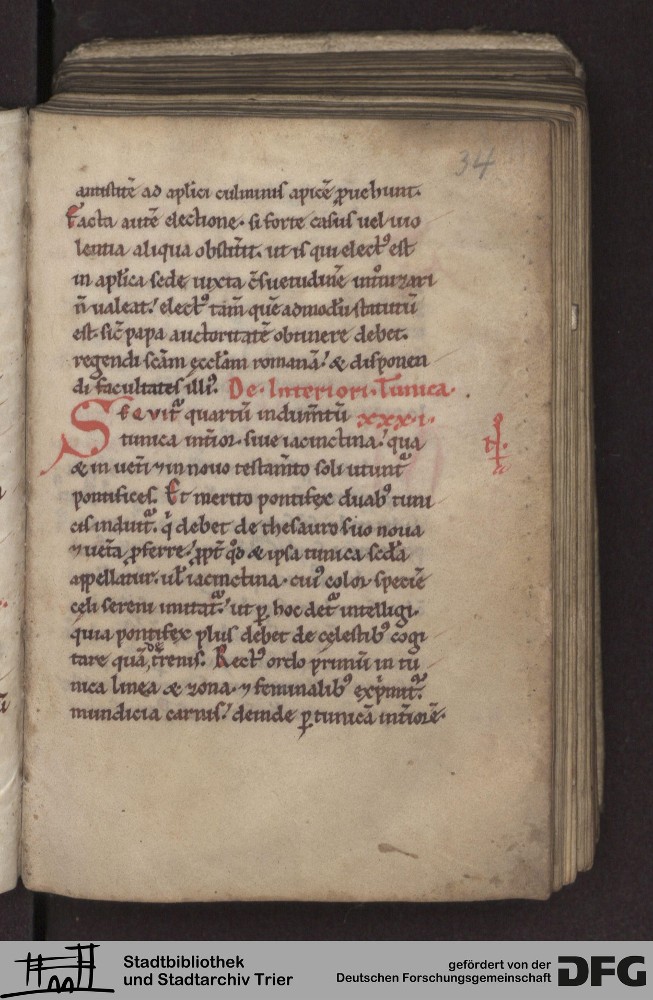 34
antistitē ad apl̄ici culminis apicē ꝓuehunt.
Facta autē electione. si forte casus uel uio
lentia aliqua obstit̄it. ut is qui elect᷒ est
in apl̄ica sede iuxta c̄suetudinē int᷒nizari
n̄ ualeat. elect᷒ tam̄ quē admodū statutū
est. sic̄ papa auctoritatē obtinere debet.
regendi sc̄am ęccl̄am romanā. & disponen
di facultates illi᷒. De Interiori Tunica.
Sequit᷑ quartū indum̄tū xxxi.
tunica int̄ior. siue iacinctina. qua
& in uet̄i ⁊ in nouo testam̄to soli utunt᷑
pontifices. Et merito pontifex duab᷒ tuni
cis induit᷑. q̇ debet de thesauro suo noua
⁊ uet̄a ꝓferre. ꝓpt̄ qd̄ & ipsa tunica scd̄a
appellatur. ul̄ iacinctina. cui᷒ color speciē
cęli sereni imitat᷑. ut ꝑ hoc det᷑ intelligi.
quia pontifex plus debet de cęlestib᷒ cogi
tare quā de t̄renis. Rect᷒ ordo primū in tu
nica linea & zona. ⁊ feminalib᷒ exṗmit᷑
mundicia carnis. deinde ꝑ tunicā int̄iorē.
Stadtbibliothek
und Stadtarchiv Trier
gefördert von der
Deutschen Forschungsgemeinschaft
DFG